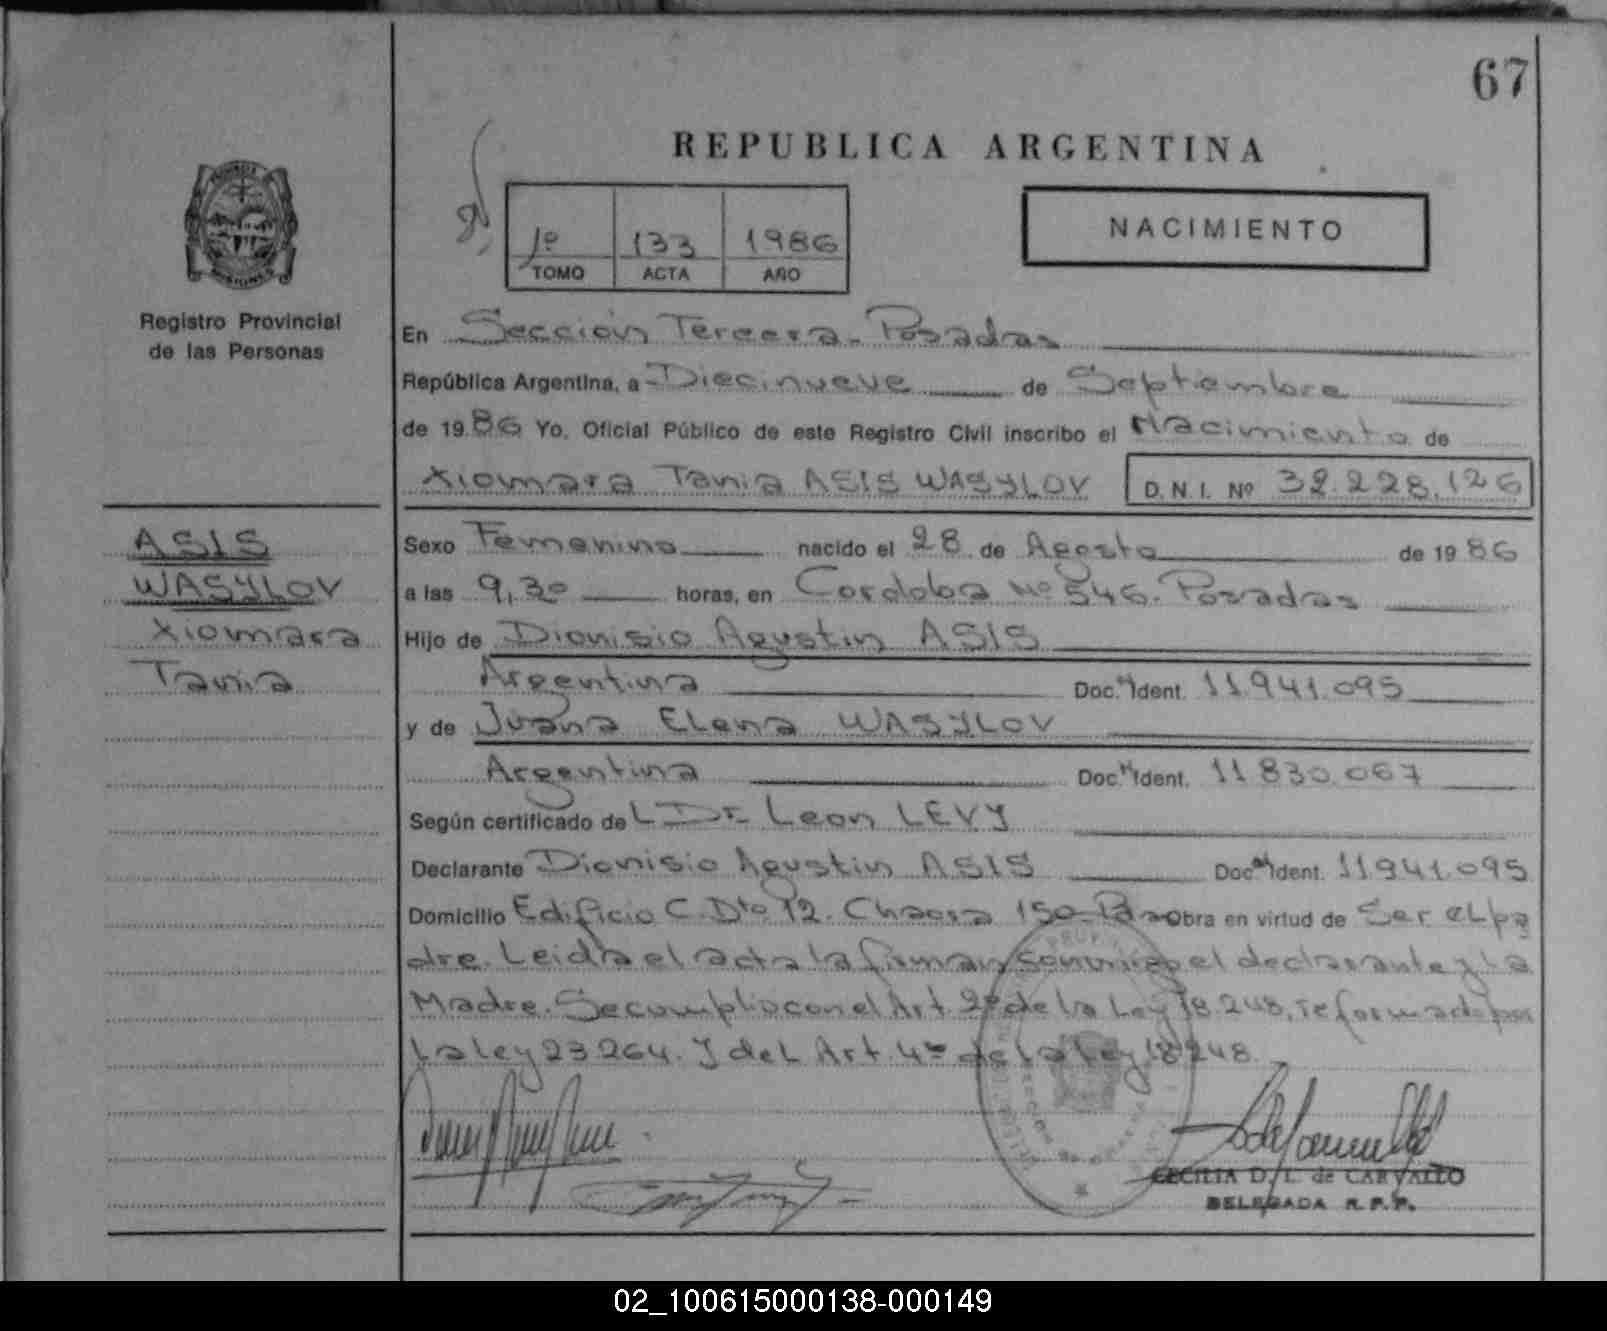 67
REPUBLICA ARGENTINA
1º 133 1986
TOMO ACTA AÑO
NACIMIENTO
Registro Provincial
de las Personas
En Sección Tercera - Posadas
República Argentina, a Diecinueve de Septiembre
de 1986 Yo, Oficial Público de este Registro Civil inscribo el Nacimiento de
Xiomara Tania ASIS WASYLOV D.N.I. Nº 32.228.126
ASIS
WASYLOV
Xiomara
Tania
Sexo Femenino nacido el 28 de Agosto de 1986
a las 9,30 horas, en Cordoba Nº 546. Posadas
Hijo de Dionisio Agustin ASIS
Argentina Doc. Ident. 11.941.095
y de Juana Elena WASYLOV
Argentina Doc. Ident. 11.830.067
Según certificado del Dr. Leon LEVY
Declarante Dionisio Agustin ASIS Doc. Ident. 11.941.095
Domicilio Edificio C. Dto 12. Chacra 150 - obra en virtud de Ser el pa
dre. Leida el acta la firman conmigo el declarante y la
Madre. Se cumplio con el Art. 2º de la Ley 18.248, reformado por
la ley 23.264. Y del Art. 4º de la Ley 18248.
CECILIA D. L. de CARVALLO
DELEGADA R.P.P.
02_100615000138-000149